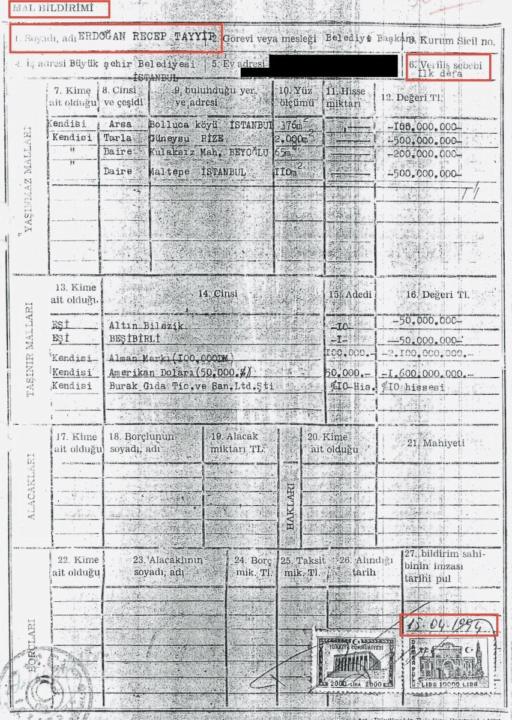 MAL BİLDİRİMİ
1. Soyadı, adı ERDOĞAN RECEP TAYYİP Görevi veya mesleği Belediye Başkanı 3. Kurum Sicil no.
4. İş adresi Büyük şehir Belediyesi İSTANBUL 5. Ev adresi 6. Veriliş sebebi İlk defa
YAŞINMAZ MALLARI
7. Kime ait olduğu 8. Cinsi ve çeşidi 9. bulunduğu yer ve adresi 10. Yüz ölçümü 11. Hisse miktarı 12. Değeri Tl.
Kendisi Arsa Bolluca köyü İSTANBUL 376m² -
Kendisi Tarla Güneysu RİZE 2.000m² -500.000.000-
" Daire Kulaksız Mah. BEYOĞLU 65m² -200.000.000-
" Daire Maltepe İSTANBUL 110m² -500.000.000-
TAŞINIR MALLARI
13. Kime ait olduğu. 14. Cinsi 15. Adedi 16. Değeri Tl.
EŞİ Altın Bilezik. -10- -50.000.000-
EŞİ BEŞİBİRLİ -1- -50.000.000-
Kendisi Alman Markı(100.000DM 100.000.- -2.100.000.000.-
Kendisi Amerikan Doları(50.000.$) 50.000.- -1.600.000.000.-
Kendisi Burak Gıda Tic.ve San.Ltd.Şti %10-His. %10 hissesi
ALACAKLARI
17. Kime ait olduğu 18. Borçlunun soyadı, adı 19. Alacak miktarı TL.
HAKLARI
20. Kime ait olduğu 21. Mahiyeti
BORÇLARI
22. Kime ait olduğu 23. Alacaklının soyadı, adı 24. Borç mik. Tl. 25. Taksit mik. Tl. 26. Alındığı tarih 27. bildirim sahibinin imzası tarihi pul
15.04.1994
TÜRKİYE CUMHURİYETİ
2000 LİRA 2000
LİRA 10000 LİRA